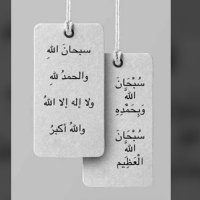 سبحانَ اللهِ
والحمدُ للهِ
ولا إله إلا اللهُ
واللهُ أكبرُ
سُبْحَانَ
اللَّهِ
وَبِحَمْدِهِ
سُبْحَانَ
اللَّهِ
الْعَظِيمِ